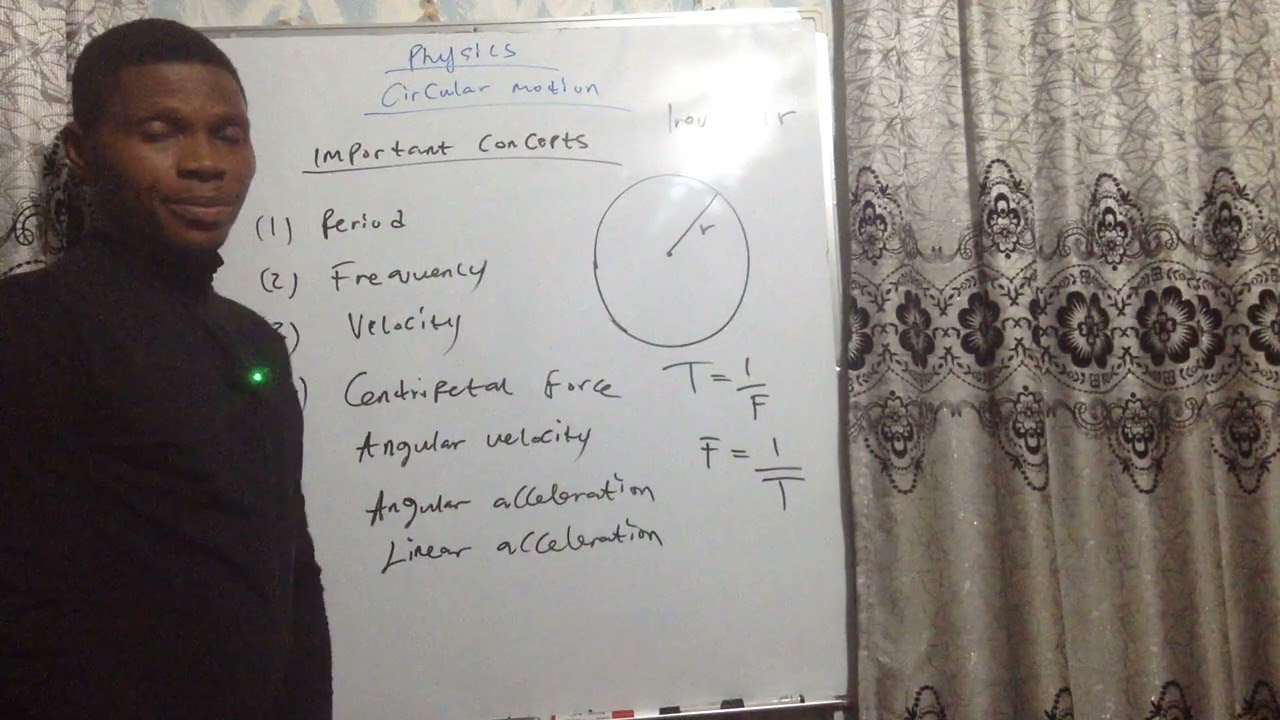 Physics
Circular motion
Important Concepts
(1) Period
(2) Frequency
) Velocity
) Centripetal force
Angular velocity
Angular acceleration
Linear acceleration
r
r
T = 1/F
F = 1/T